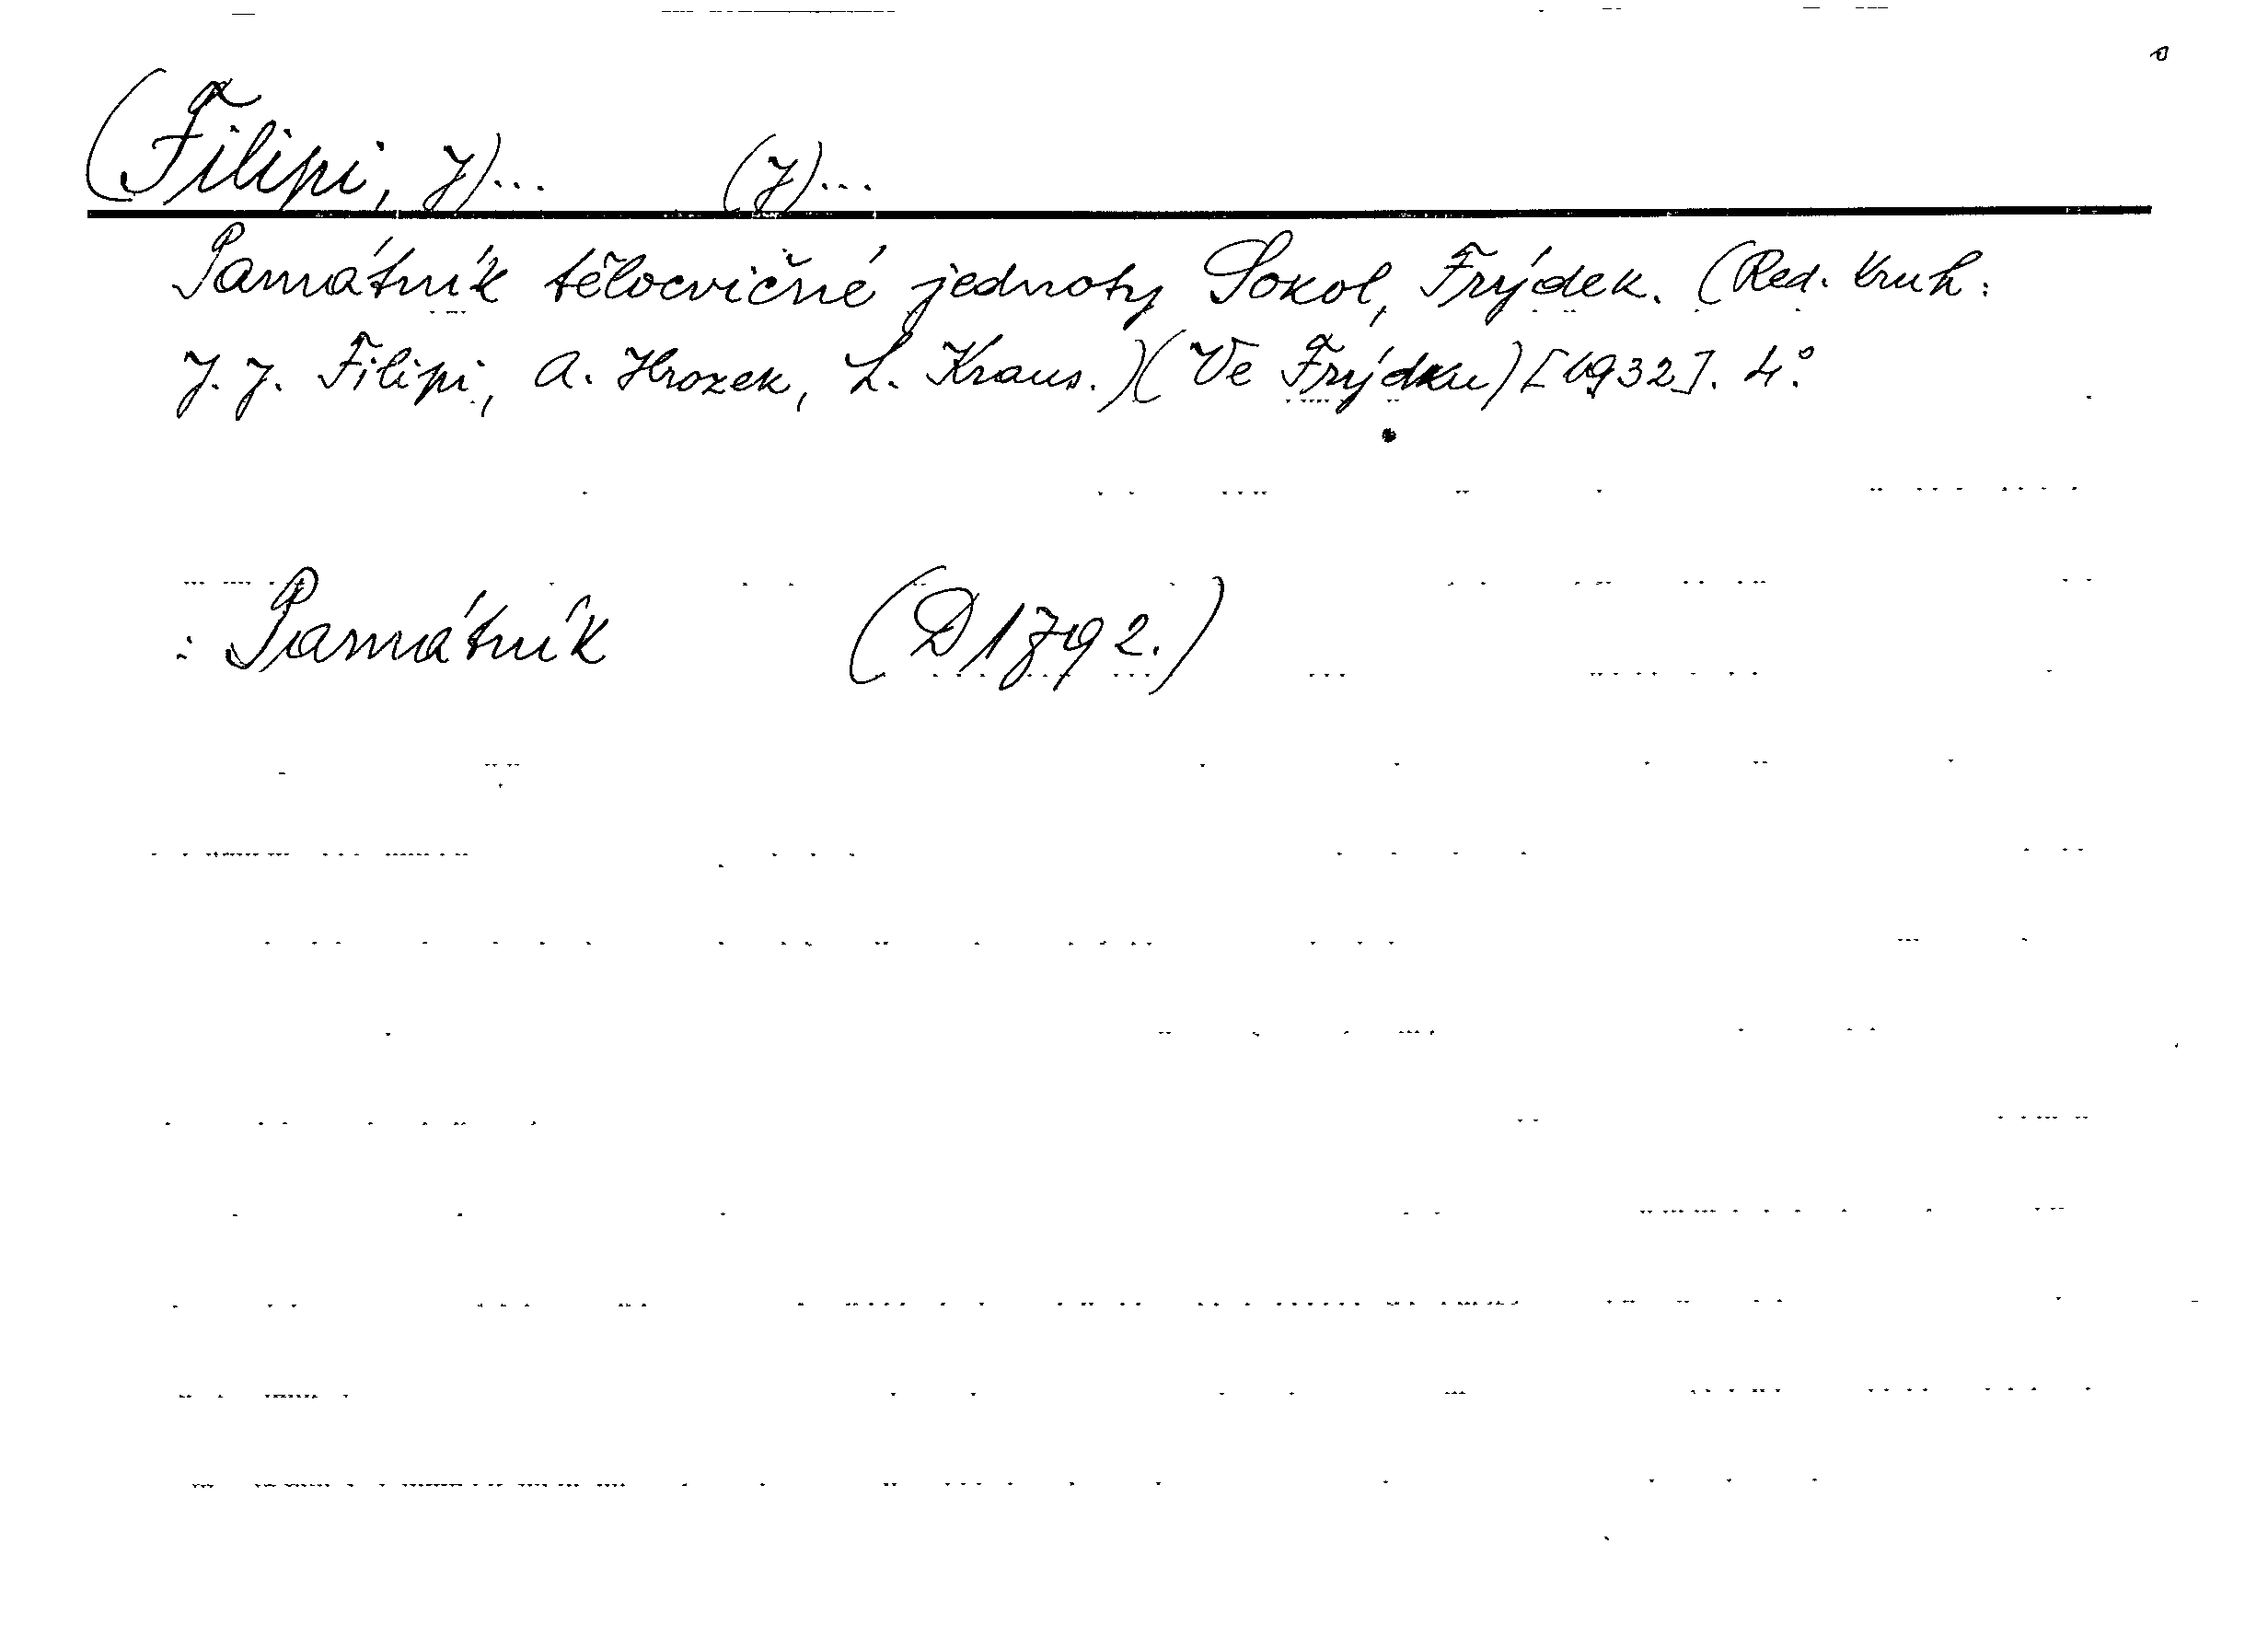 (Filipi, J)... (J)...
Památník tělocvičné jednoty Sokol, Frýdek. (Red. kruh:
J. J. Filipi, A. Hrozek, L. Kraus.)(Ve Frýdku)[1932]. 4°.
: Památník (D 1792.)